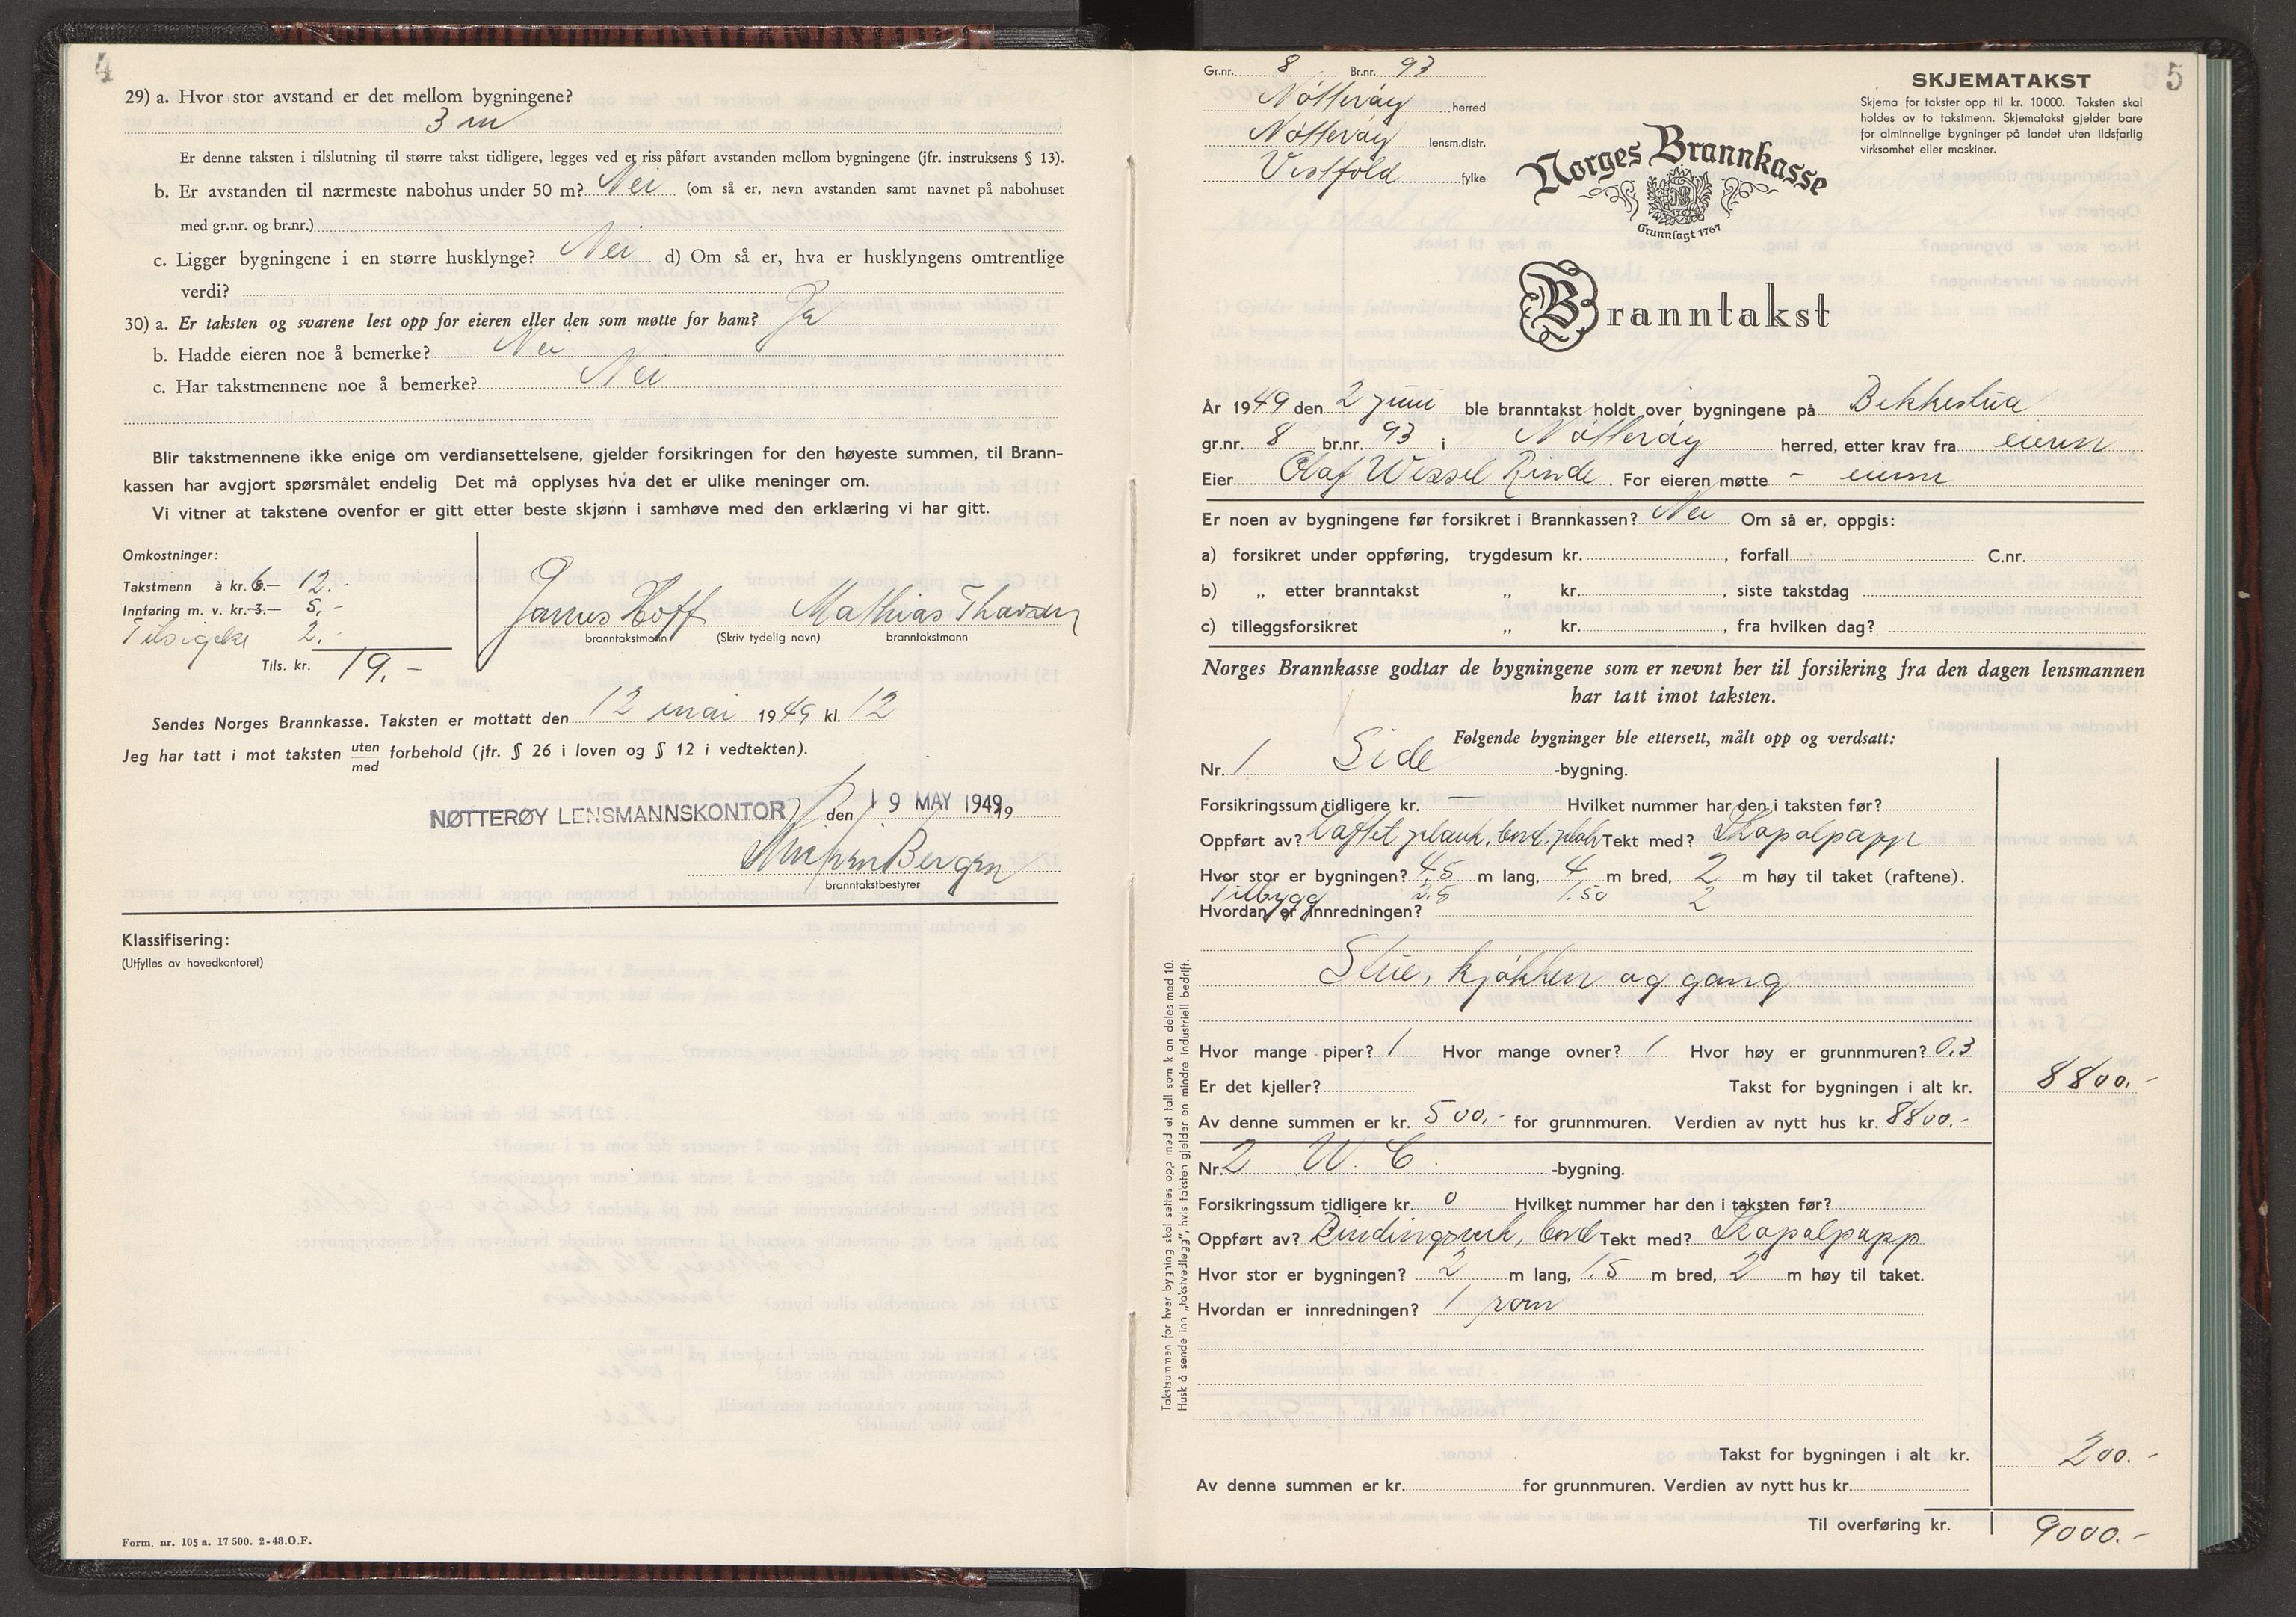 4
29) a. Hvor stor avstand er det mellom bygningene?
3 m
Er denne taksten i tilslutning til større takst tidligere, legges ved et riss påført avstanden mellom bygningene (jfr. instruksens § 13).
b. Er avstanden til nærmeste nabohus under 50 m? Nei (om så er, nevn avstanden samt navnet på nabohuset
med gr.nr. og br.nr.)
c. Ligger bygningene i en større husklynge? Nei d) Om så er, hva er husklyngens omtrentlige
verdi?
30) a. Er taksten og svarene lest opp for eieren eller den som møtte for ham? Ja
b. Hadde eieren noe å bemerke? Nei
c. Har takstmennene noe å bemerke? Nei
Blir takstmennene ikke enige om verdiansettelsene, gjelder forsikringen for den høyeste summen, til Brann-
kassen har avgjort spørsmålet endelig Det må opplyses hva det er ulike meninger om.
Vi vitner at takstene ovenfor er gitt etter beste skjønn i samhøve med den erklæring vi har gitt.
Omkostninger:
Takstmenn à kr. 6.— 12.-
Innføring m. v. kr. 3.— 5.-
Tilsigelse 2.-
Tils. kr. 19.-
James Hoff Mathias Thoresen
branntakstmann (Skriv tydelig navn) branntakstmann
Sendes Norges Brannkasse. Taksten er mottatt den 12 mai 1949 kl. 12
Jeg har tatt i mot taksten uten forbehold (jfr. § 26 i loven og § 12 i vedtekten).
med
NØTTERØY LENSMANNSKONTOR den 19 MAY 1949
Bergan
branntakstbestyrer
Klassifisering:
(Utfylles av hovedkontoret)
Form. nr. 105 a. 17 500. 2-48. O.F.
5
Gr.nr. 8 Br.nr. 93
Nøtterøy herred
Nøtterøy lensm.distr.
Vestfold fylke
SKJEMATAKST
Skjema for takster opp til kr. 10 000. Taksten skal
holdes av to takstmenn. Skjematakst gjelder bare
for alminnelige bygninger på landet uten ildsfarlig
virksomhet eller maskiner.
Norges Brannkasse
Grunnlagt 1767
Branntakst
År 1949 den 2 juni ble branntakst holdt over bygningene på Bekkestua
gr.nr. 8 br.nr. 93 i Nøtterøy herred, etter krav fra eieren
Eier Olaf Wessel Rinde. For eieren møtte - eieren
Er noen av bygningene før forsikret i Brannkassen? Nei Om så er, oppgis:
a) forsikret under oppføring, trygdesum kr. , forfall C.nr.
b) „ etter branntakst „ kr. , siste takstdag
c) tilleggsforsikret „ kr. , fra hvilken dag?
Norges Brannkasse godtar de bygningene som er nevnt her til forsikring fra den dagen lensmannen
har tatt imot taksten.
Følgende bygninger ble ettersett, målt opp og verdsatt:
Nr. 1 Side -bygning.
Forsikringssum tidligere kr. — Hvilket nummer har den i taksten før?
Oppført av? Laftet plank, bord, plater Tekt med? Kopalpapp
Hvor stor er bygningen? 4,5 m lang, 4 m bred, 2 m høy til taket (raftene).
Tilbygg 2.5 1.50 2
Hvordan er innredningen?
Stue, kjøkken og gang
Hvor mange piper? 1 Hvor mange ovner? 1 Hvor høy er grunnmuren? 0.3
Er det kjeller? Takst for bygningen i alt kr. 8800.-
Av denne summen er kr. 500.- for grunnmuren. Verdien av nytt hus kr. 8800.-
Nr. 2 W.C. -bygning.
Forsikringssum tidligere kr. 0 Hvilket nummer har den i taksten før?
Oppført av? Bindingsverk, bord Tekt med? Kopalpapp
Hvor stor er bygningen? 2 m lang, 1.5 m bred, 2 m høy til taket.
Hvordan er innredningen? 1 rom
Takst for bygningen i alt kr. 200.-
Av denne summen er kr. for grunnmuren. Verdien av nytt hus kr.
Til overføring kr. 9000.-
Takstsummen for hver bygning skal settes opp med et tall som kan deles med 10.
Husk å sende inn „takstvedlegg", hvis taksten gjelder en mindre industriell bedrift.